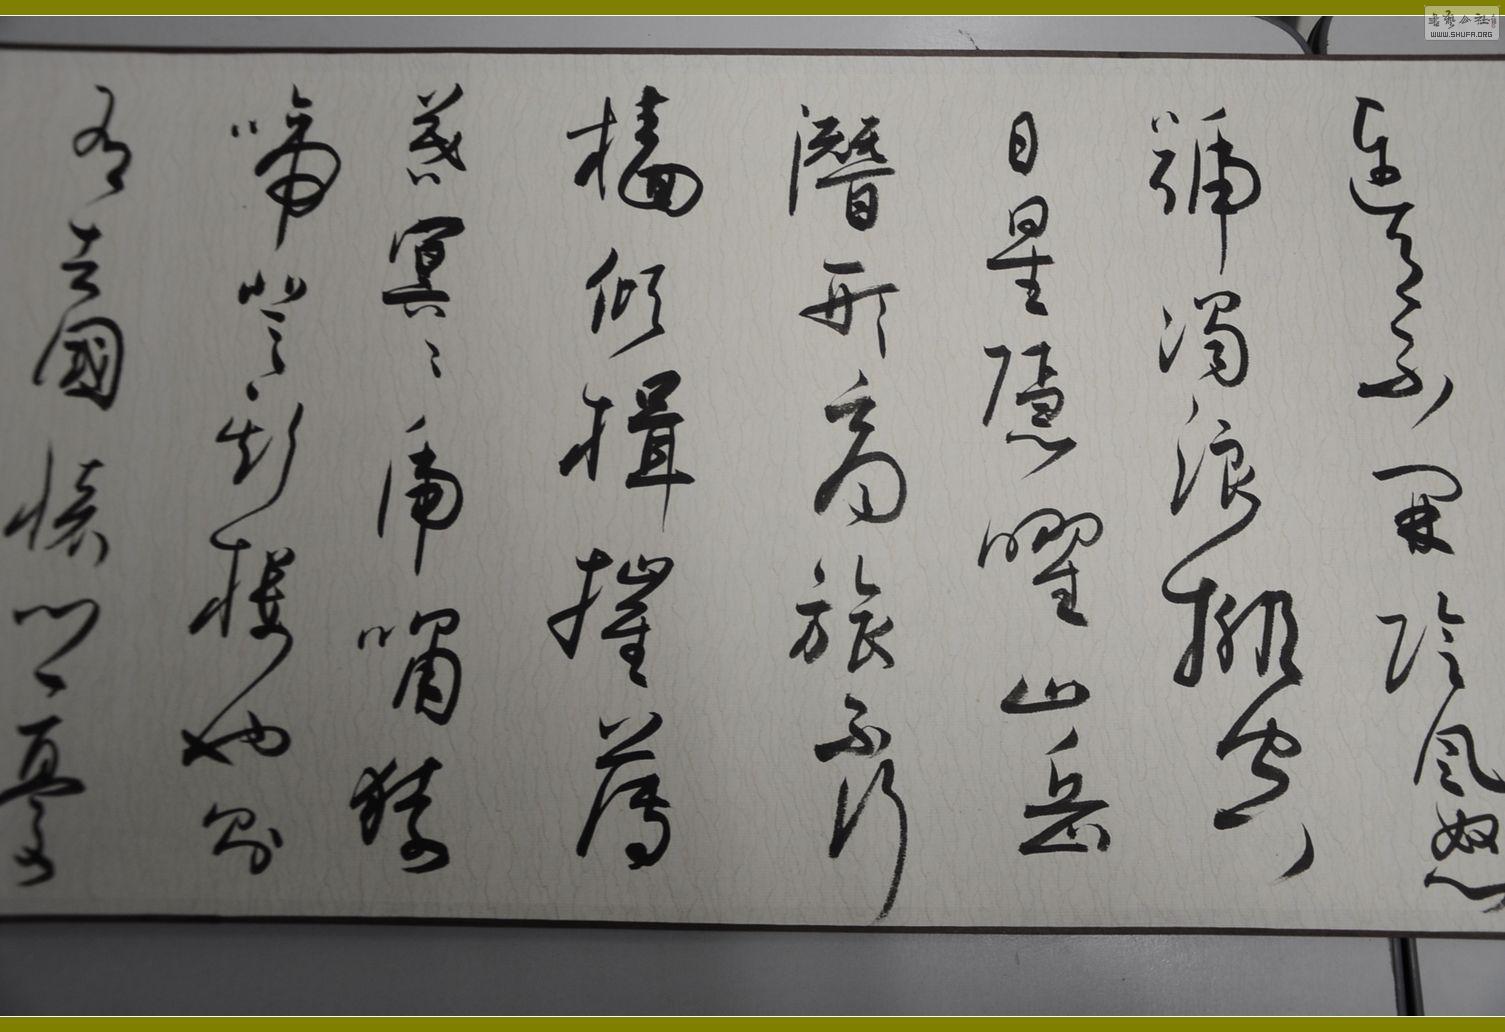 連月不開陰風怒
號濁浪排空
日星隱曜山岳
潛形商旅不行
檣傾楫摧薄
暮冥〻虎嘯猿
啼登斯樓也則
有去國懷鄉憂
书艺公社
WWW.SHUFA.ORG